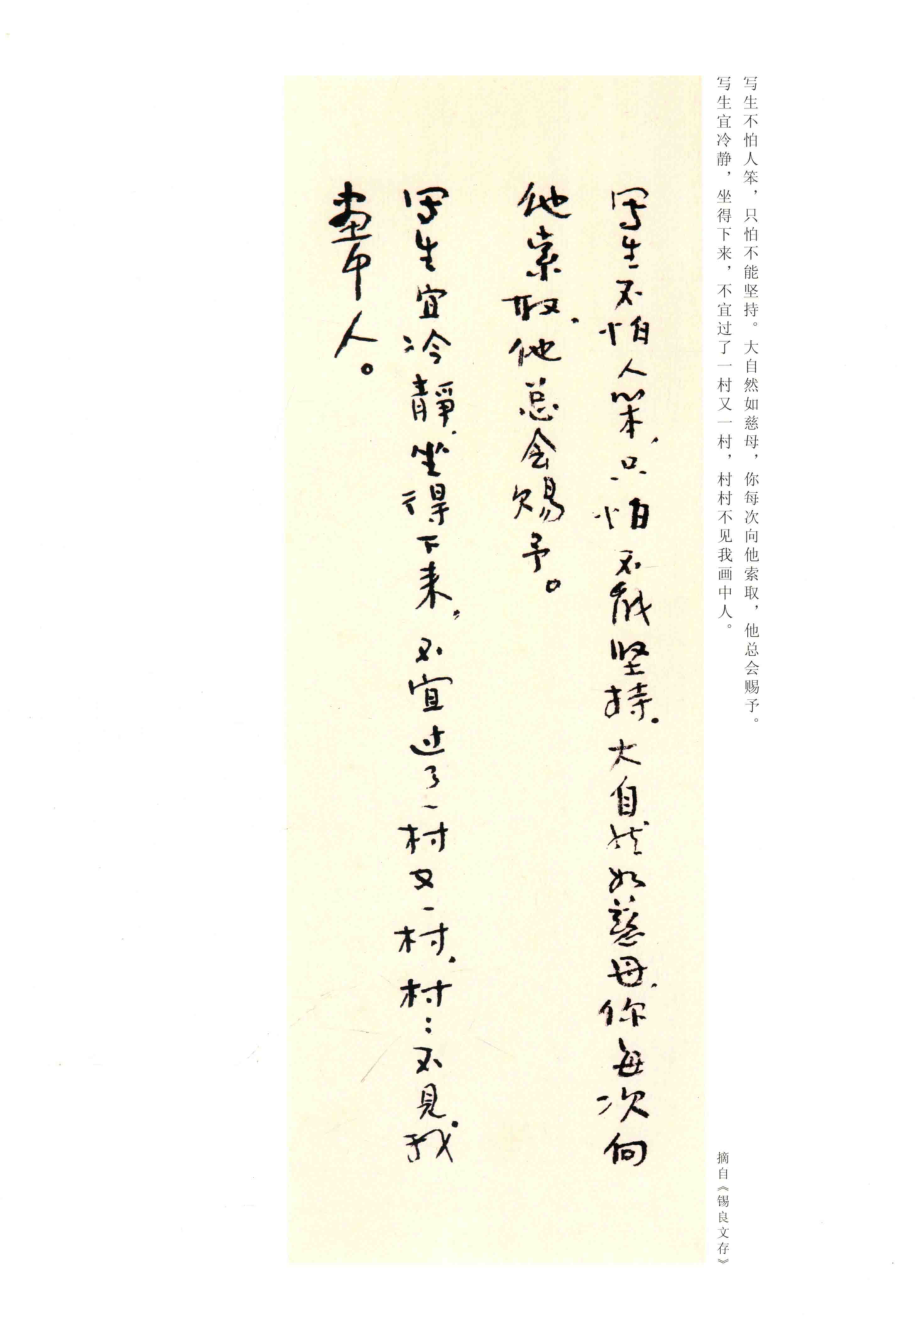 写生不怕人笨，只怕不能坚持。大自然如慈母，你每次向他索取，他总会赐予。
写生宜冷静，坐得下来，不宜过了一村又一村，村村不见我画中人。
摘自《锡良文存》
写生不怕人笨，只怕不能坚持。大自然如慈母，你每次向
他索取，他总会赐予。
写生宜冷靜，坐得下来，不宜过了一村又一村，村：不見我
畫中人。